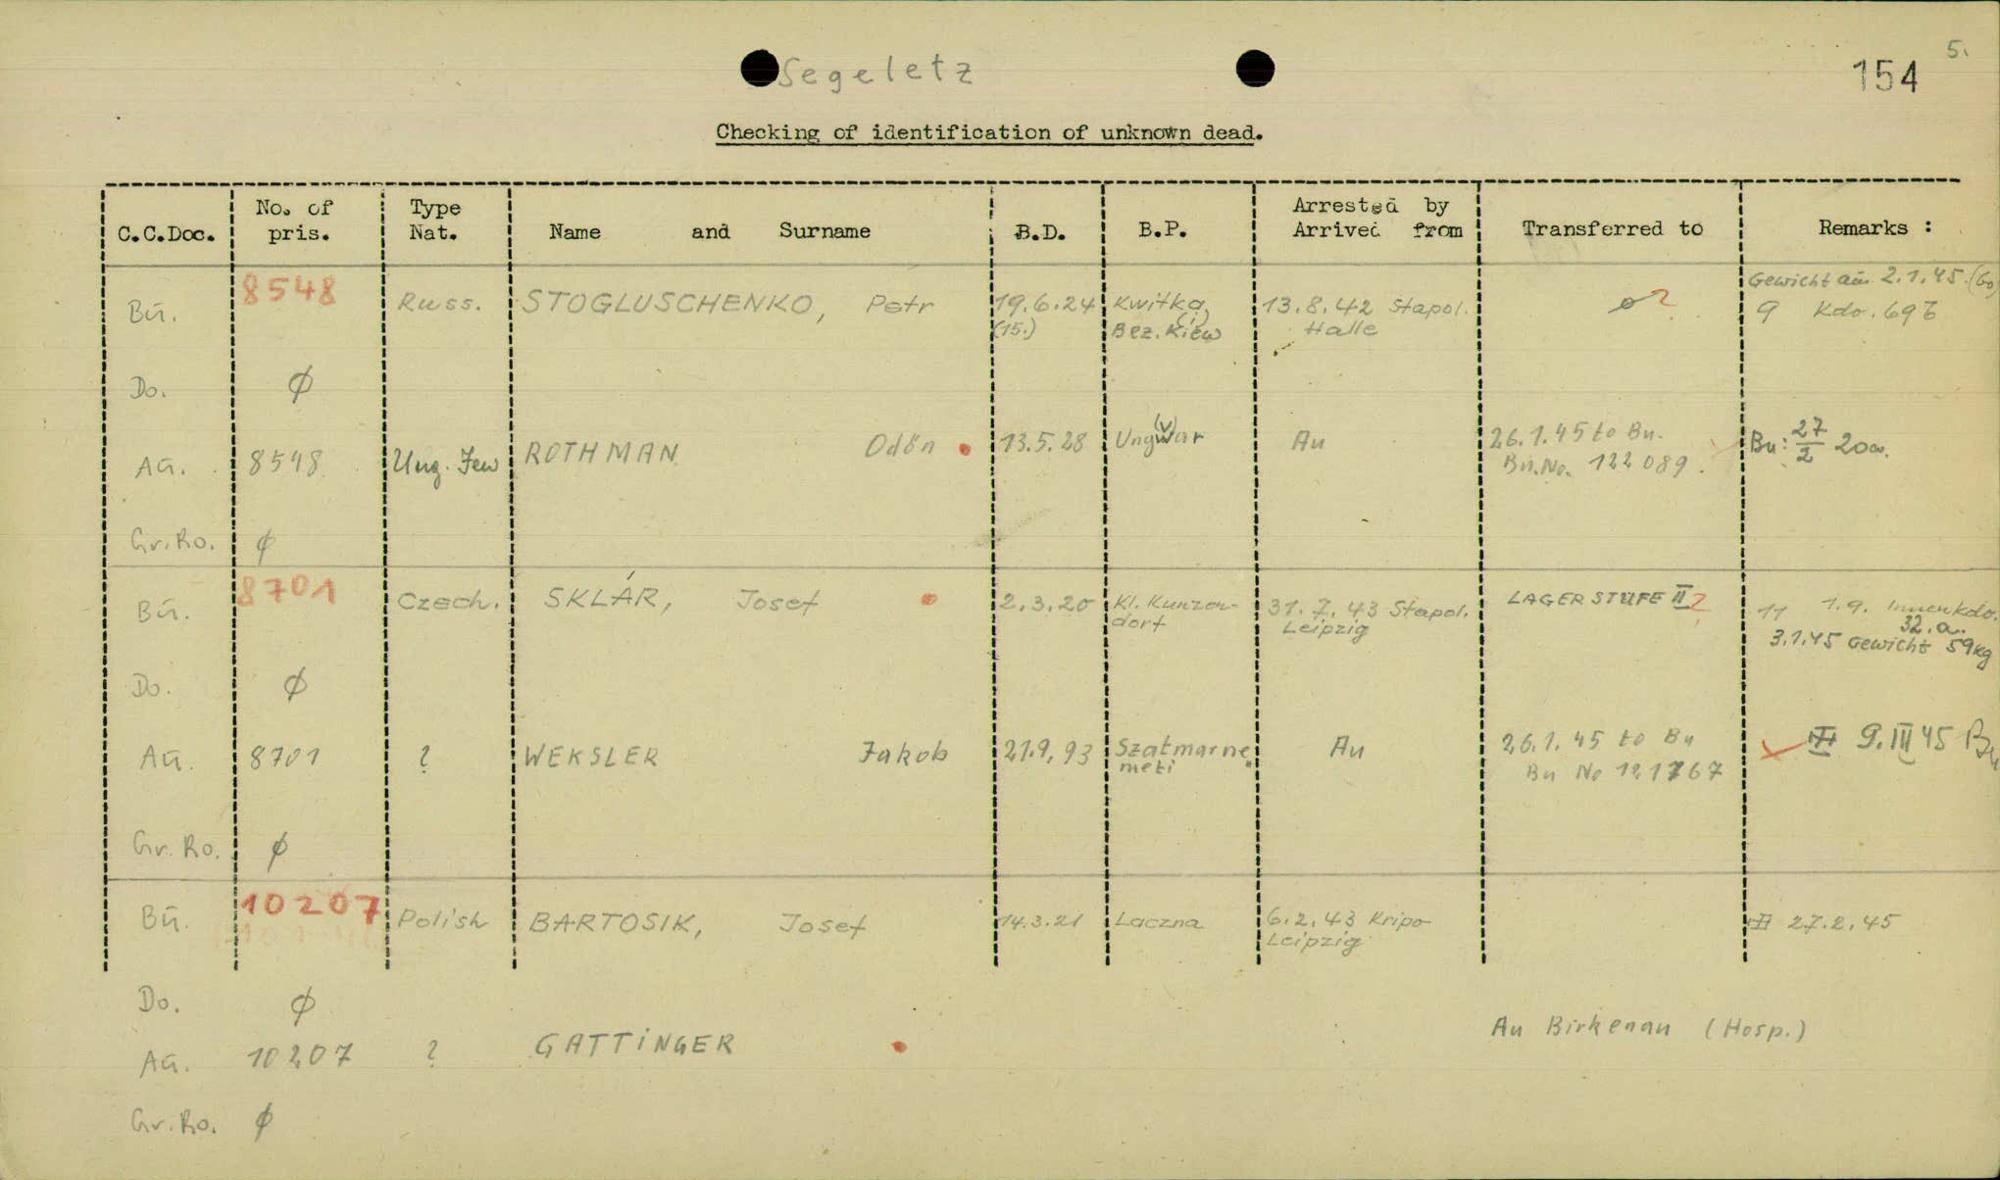 Segeletz
154
5.
Checking of identification of unknown dead.
C.C.Doc. No. of pris. Type Nat. Name and Surname B.D. B.P. Arrested by Arrived from Transferred to Remarks :
Bū. 8548 Russ. STOGLUSCHENKO, Petr 19.6.24 (15.) Kwitka, (i) Bez. Kiew 13.8.42 Stapol. Halle ø ? Gewicht am 2.1.45. 9 Kdo.
Do. ø
Aū. 8548 Ung. Jew ROTHMAN Odön 13.5.28 Ungwar (v) Au 26.1.45 to Bu. Bu.No. 122089. Bu: 27/2
Gr.Ro. ø
Bū. 8701 Czech. SKLÁR, Josef 2.3.20 Kl. Kunzen-
dorf 31.7.43 Stapol. Leipzig LAGERSTUFE II ? 11 1.9. Innenkdo. 32.a. 3.1.45 Gewicht 59kg
Do. ø
Aū. 8701 ? WEKSLER Jakob 21.9.93 Szatmarne
meti Au 26.1.45 to Bu Bu No 121767 9.III 45 Bu
Gr.Ro. ø
Bū. 10207 Polish BARTOSIK, Josef 14.3.21 Laczna 6.2.43 Kripo Leipzig 27.2.45
Do. ø
Aū. 10207 ? GATTINGER Au Birkenau (Hosp.)
Gr.Ro. ø